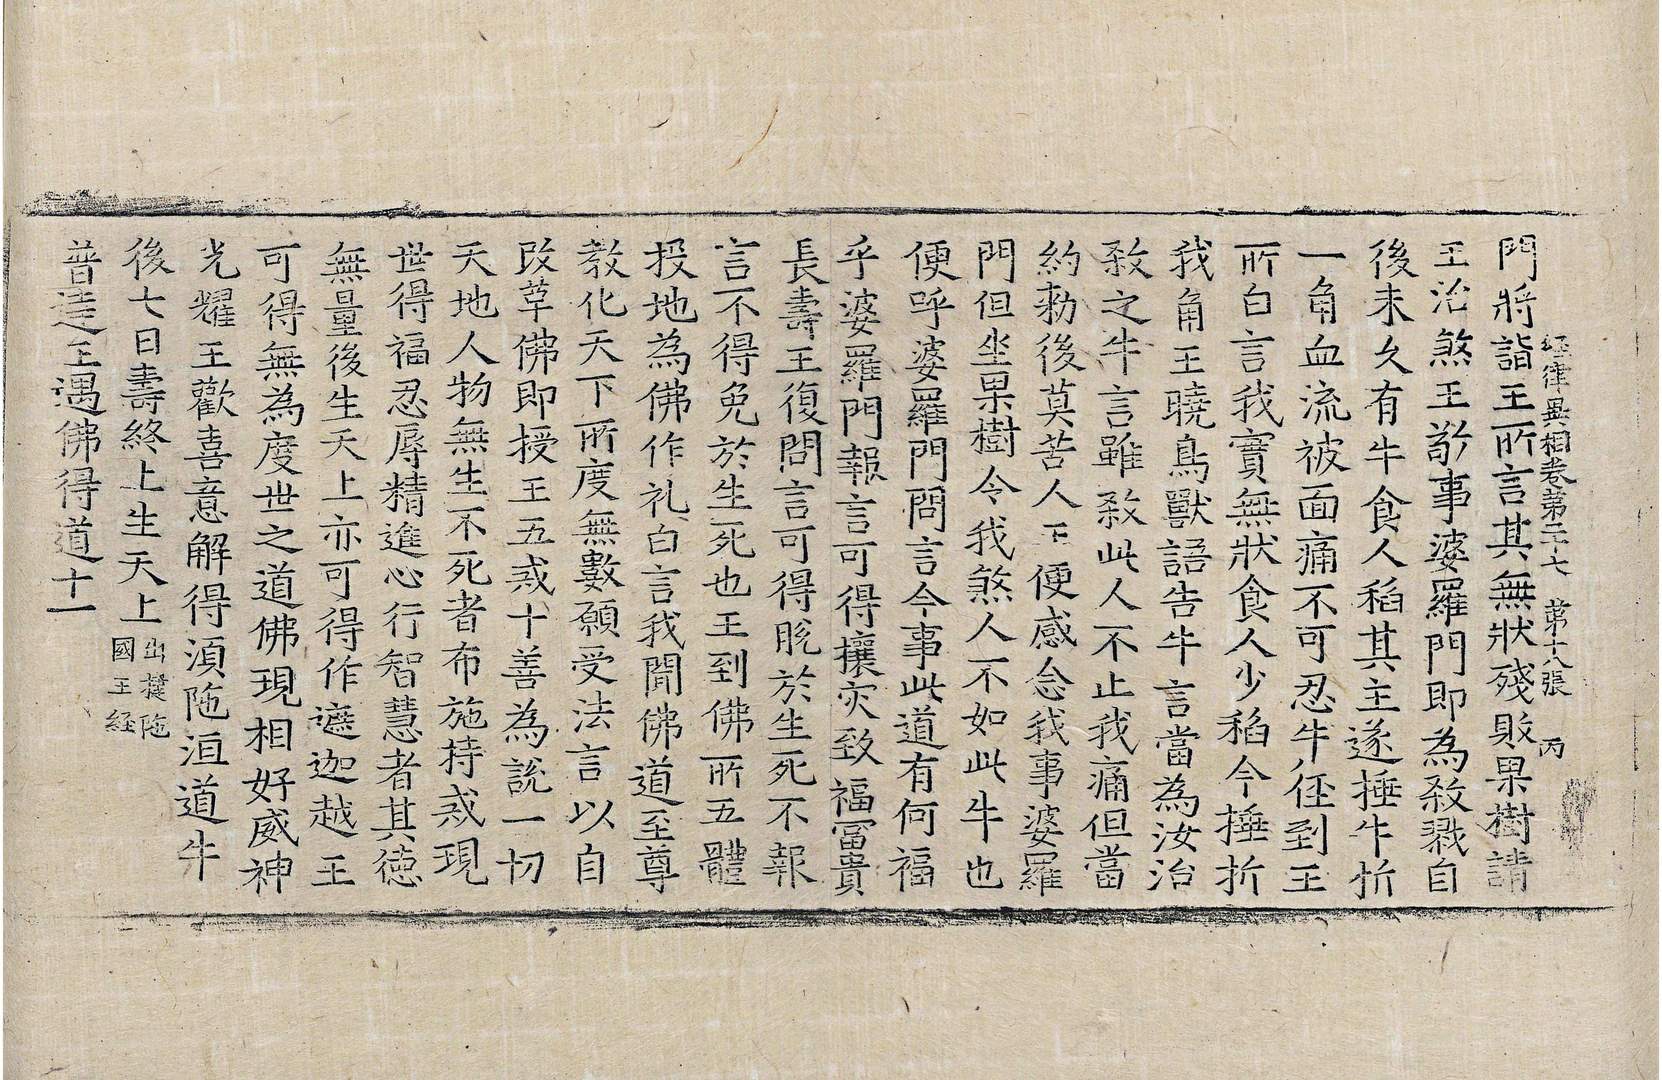 經律異相卷第二十七 第十八張 丙
門將詣王所言其無狀殘敗果樹請
王治煞王敬事婆羅門即為殺戮自
後未久有牛食人稻其主逐捶牛折
一角血流被面痛不可忍牛徑到王
所白言我實無狀食人少稻今捶折
我角王曉鳥獸語告牛言當為汝治
殺之牛言雖殺此人不止我痛但當
約勑後莫苦人王便感念我事婆羅
門但坐果樹令我煞人不如此牛也
便呼婆羅門問言今事此道有何福
乎婆羅門報言可得攘灾致福冨貴
長壽王復問言可得脫於生死不報
言不得免於生死也王到佛所五體
投地為佛作礼白言我聞佛道至尊
教化天下所度無數願受法言以自
改革佛即授王五戒十善為說一切
天地人物無生不死者布施持戒現
世得福忍辱精進心行智慧者其德
無量後生天上亦可得作遮迦越王
可得無為度世之道佛現相好威神
光耀王歡喜意解得湏陁洹道牛
後七日壽終上生天上出揵陁國王經
普達王遇佛得道十一